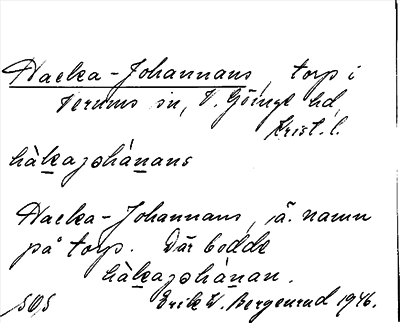 Hacka-Johannans, torp i
Verums sn, V. Göinge hd,
Krist. l.
hàkajohánans
Hacka-Johannans, ä. namn
på torp. Där bodde
hàkajohánan.
SOS Erik W. Bergenrud 1946.